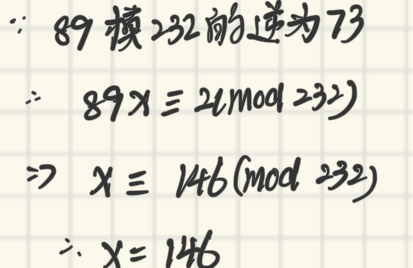 ∵ 89模232的逆为73
∴ 89x ≡ 2(mod 232)
⇒ x ≡ 146(mod 232)
∴ x = 146